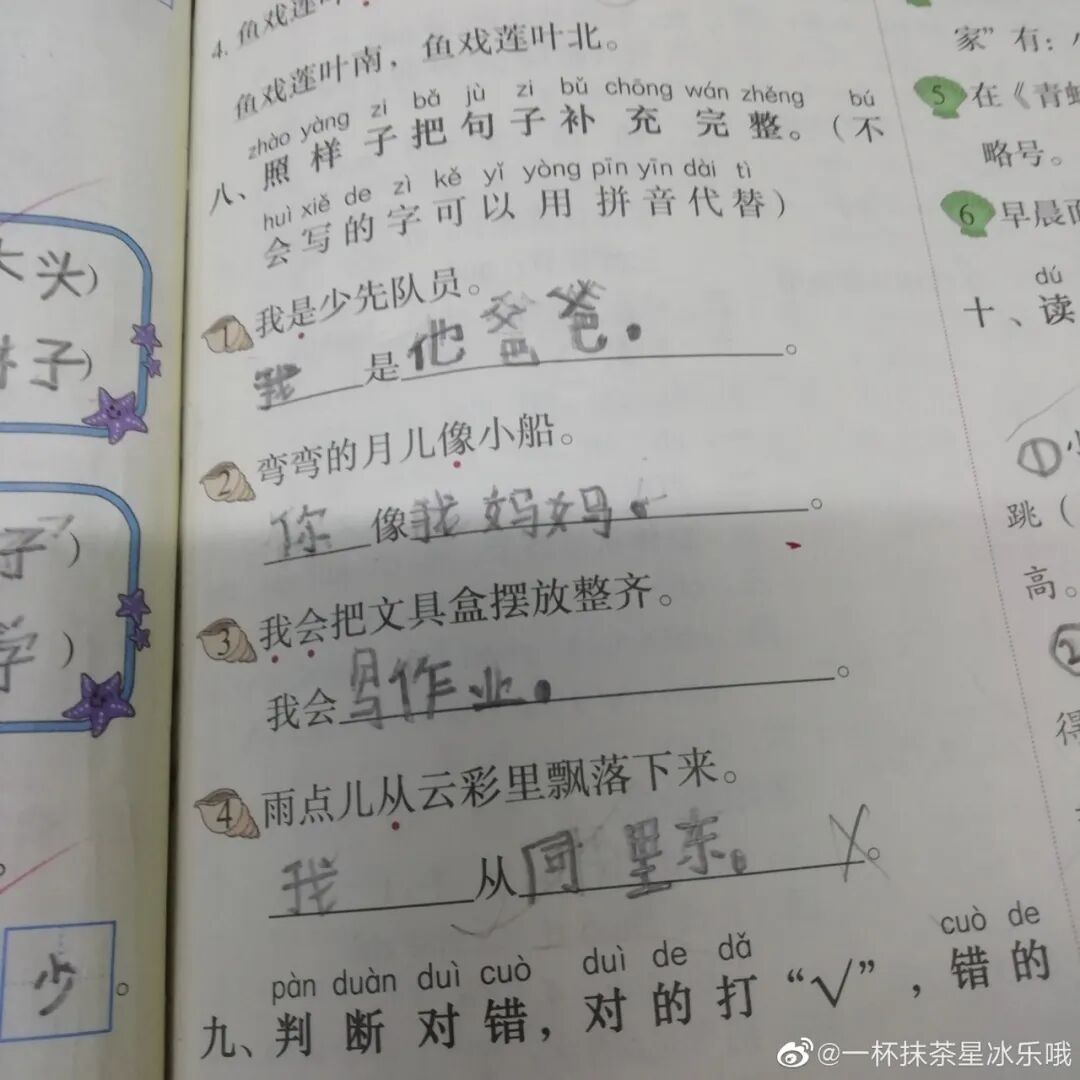 4. 鱼戏莲叶
鱼戏莲叶南，鱼戏莲叶北。
zhào yàng zi bǎ jù zi bǔ chōng wán zhěng bú
八、照样子把句子补充完整。（不
huì xiě de zì kě yǐ yòng pīn yīn dài tì
会写的字可以用拼音代替）
1 我是少先队员。
我是他爸爸。。
2 弯弯的月儿像小船。
你像我妈妈。。
3 我会把文具盒摆放整齐。
我会写作业。。
4 雨点儿从云彩里飘落下来。
我从同里东。。
pàn duàn duì cuò duì de dǎ cuò de
九、判断对错，对的打“√”，错的
头）
子）
子）
学）
少。
家”有：小
5 在《青
略号。
6 早晨
dú
十、读
①小
跳（
高。
②
得
@一杯抹茶星冰乐哦